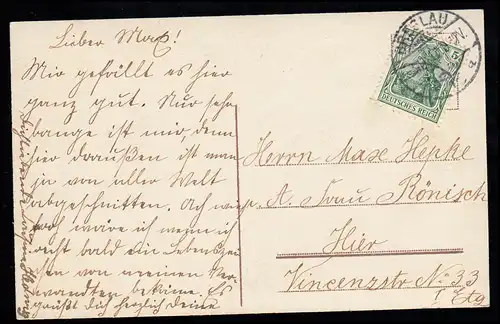 Lieber Max!
Mir gefällt es hier
ganz gut. Nur sehr
bange ist mir, denn
hier draußen ist man
ja von aller Welt
abgeschnitten. Ach wie
froh wäre ich wenn ich
recht bald ein Lebenszei-
chen von meinen Ver-
wandten bekäme. Es
grüßt dich herzlich deine
BRESLAU
5
DEUTSCHES REICH
Herrn Max Hepke
p. A. Frau Rönisch
Hier
Vincenzstr No 33
! Etg